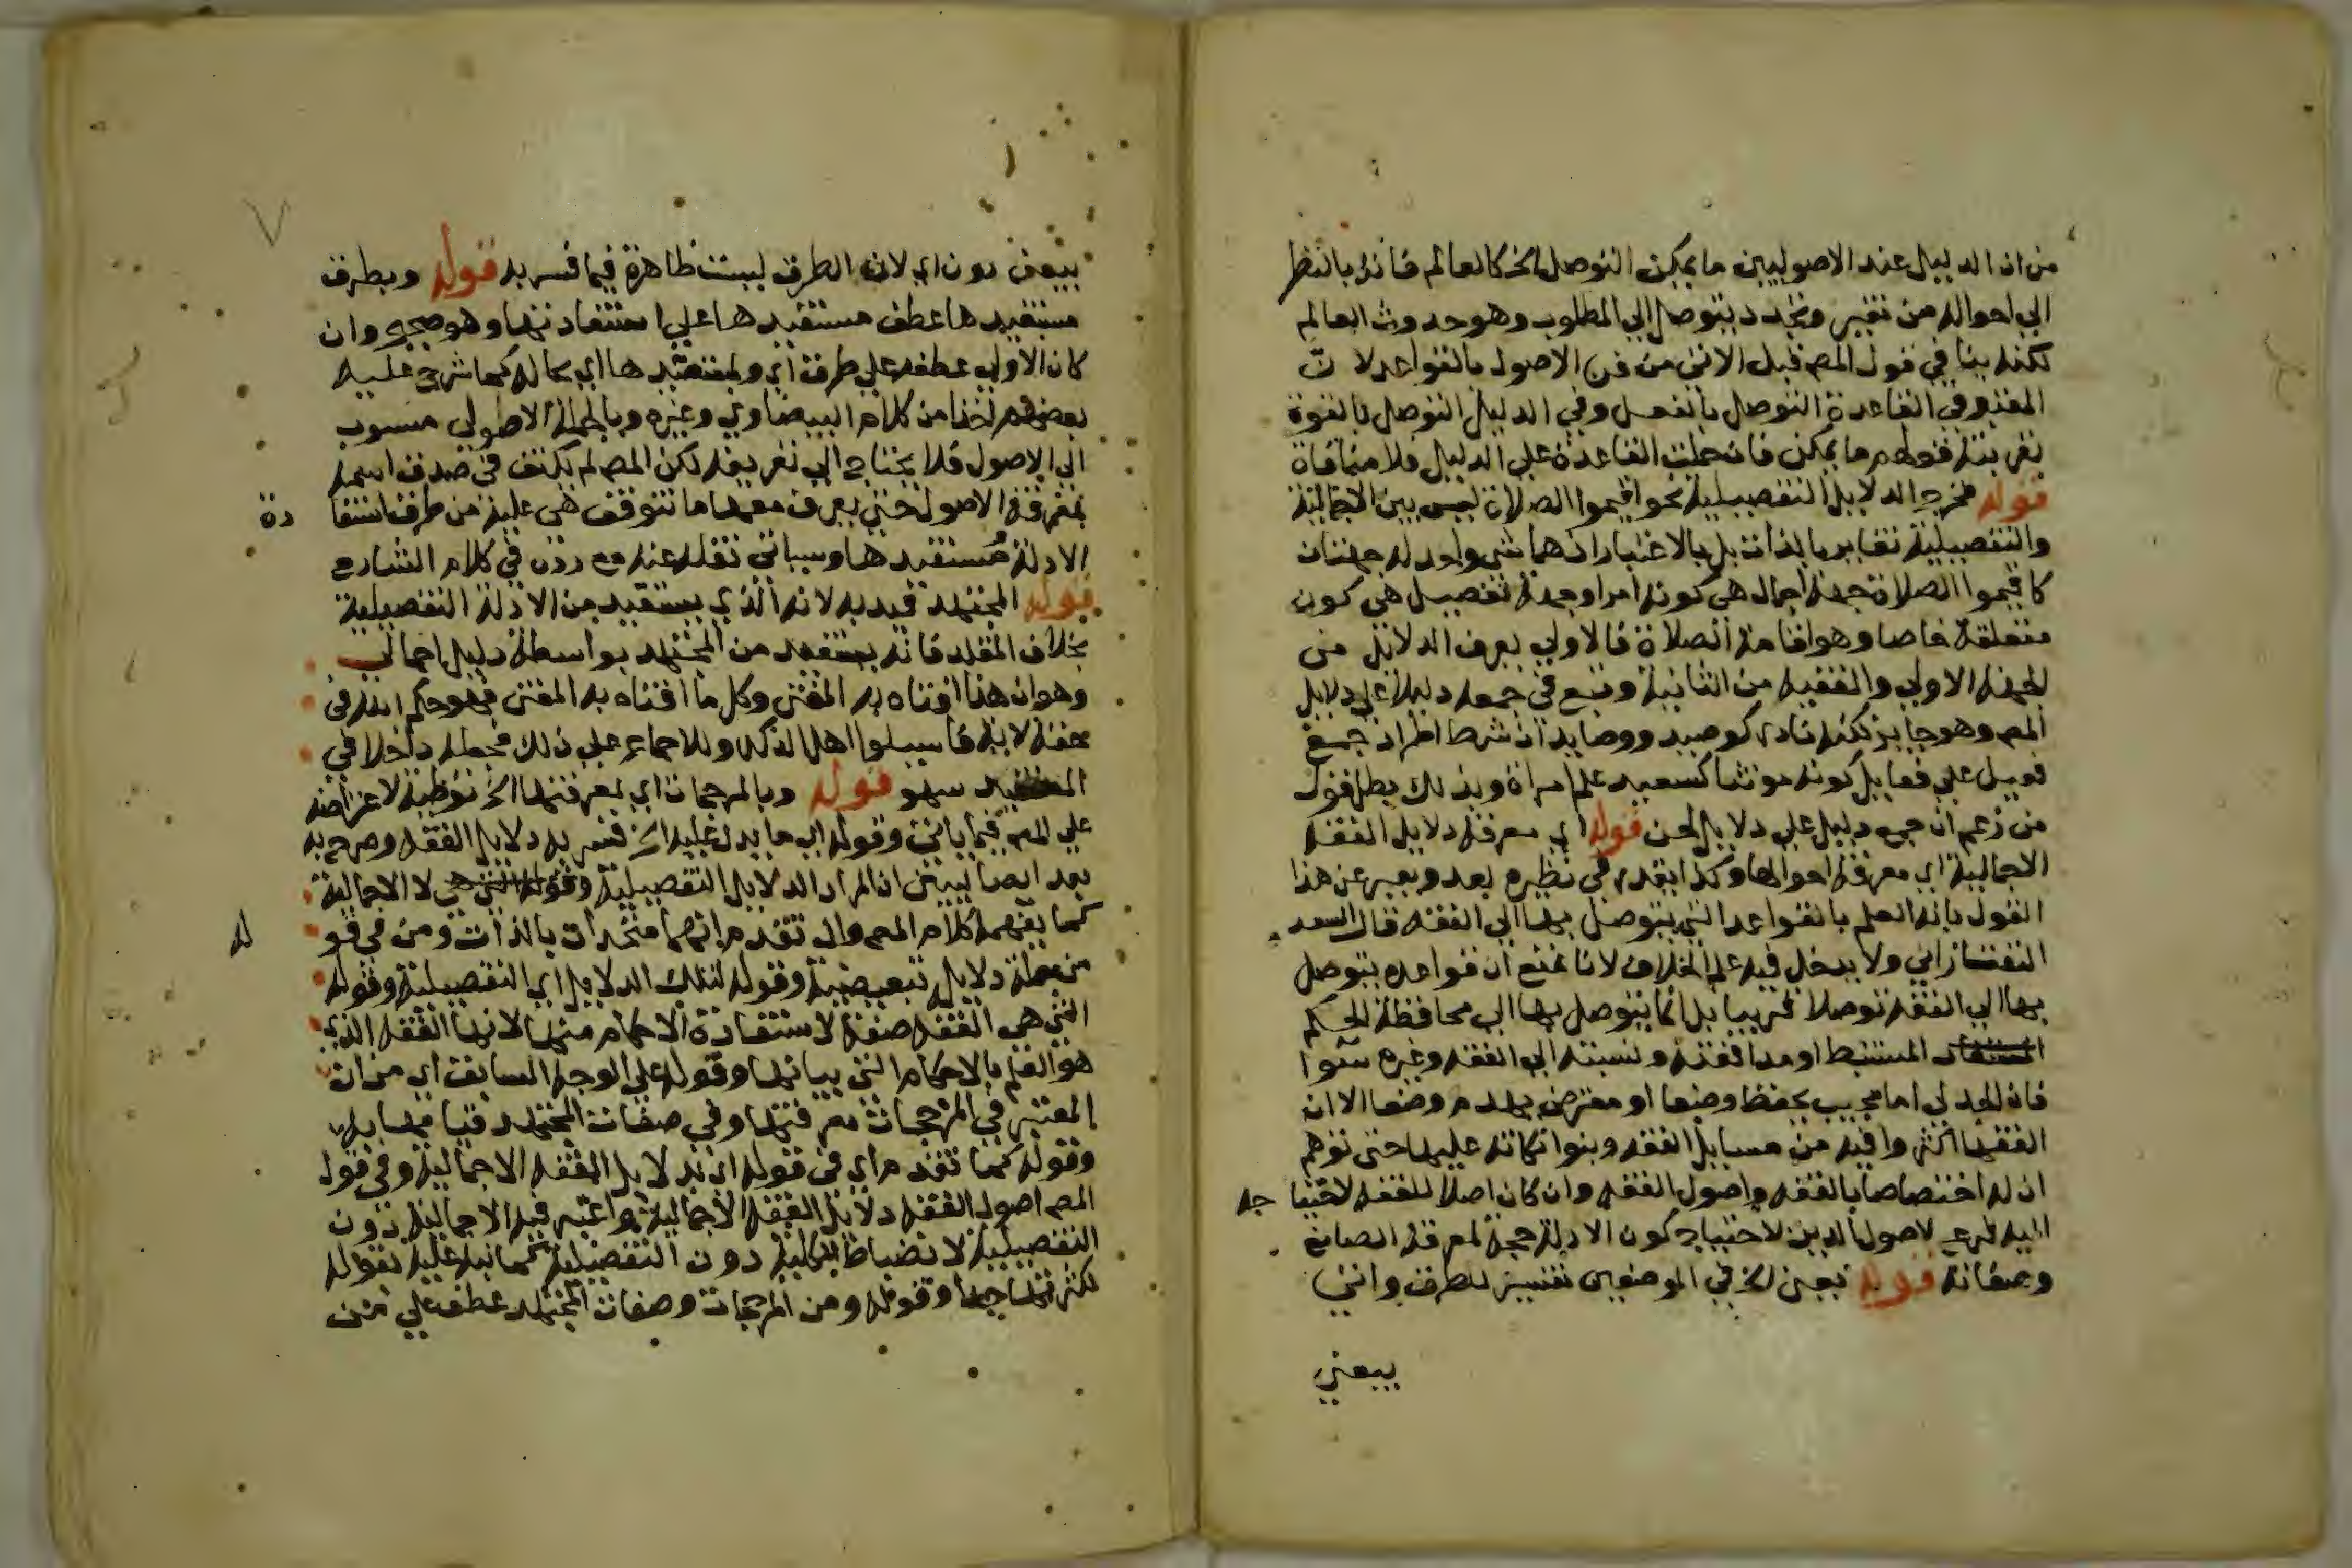 من ان الدليل عند الاصوليين ما يمكن التوصل الخ كالعالم فانه بالنظر
الي احواله من تغير وتجدد يتوصل الي المطلوب وهو حدوث العالم
لكنه ينافي قول المص قبل الاتي من فن الاصول بالقواعد لانّ
المعتبر في القاعدة التوصل بالفعل وفي الدليل التوصل بالقوة
بقرينة قولهم ما يمكن فان حملت القاعدة علي الدليل فلا منافاة
قوله فخرج الدلايل التفصيلية نحو اقيموا الصلاة ليس بين الاجمالية
والتفصيلية تغاير بالذات بل بالاعتبار اذ هما شي واحد له جهتان
كاقيموا الصلاة جهة اجمال هي كونه امرا وجهة تفصيل هي كون
متعلقه خاصا وهو اقامة الصلاة فالاولي يعرف الدلايل من
الجهة الاولي والفقيه من الثانية وتبع في جمعه دليلا علي دلايل
المص وهو جايز لكنه نادر كوصيد ووصايد اذ شرط اطراد جمع
فعيل علي فعايل كونه مونثا كسعيد علم امراة وبذلك بطل قول
من زعم ان جمع دليل علي دلايل لحن قوله اي معرفة دلايل الفقه
الاجمالية اي معرفة احوالها وكذا يقدر في نظيره بعد ويعبر عن هذا
القول بانه العلم بالقواعد التي يتوصل بها الي الفقه قال السعد
التفتازاني ولا يدخل فيه علم الخلاف لانا نمنع ان قواعده يتوصل
بها الي الفقه توصلا قريبا بل انما يتوصل بها الي محافظة الحكم
المستفاد المستنبط او مدافعته ونسبته الي الفقه وغيره سوا
فان الجدلي اما مجيب يحفظ وضعا او معترض يهدم وضعا الا ان
الفقها اكثروا فيه من مسايل الفقه وبنوا نكاته عليها حتي توهم
ان له اختصاصا بالفقه واصول الفقه وان كان اصلا للفقه لاحتيا جه
اليه فرع لاصول الدين لاحتياج كون الادلة حجة لمعرفة الصانع
وصفاته قوله تعين الخ في الموضعين تفسير للطرف واتي
بيعني
بيعني دون اي لان الطرق ليست ظاهرة فيما فسر به قوله وبطرق
مستفيدها عطف مستفيدها علي استفادتها وهو صحيح وان
كان الاولي عطفه علي طرق اي وبمستفيدها اي بحاله كما شرح عليه
بعضهم اخذا من كلام البيضاوي وغيره وبالجملة الاصولي منسوب
الي الاصول فلا يحتاج الي تعريفه لكن المص لم يكتف في صدق اسمه
بمعرفة الاصول حتي يعرف معها ما تتوقف هي عليه من طرق استفا دة
الادلة ومستفيدها وسياتي نقله عنه مع رده في كلام الشارح
قوله المجتهد قيد به لانه الذي يستفيد من الادلة التفصيلية
بخلاف المقلد فانه يستفيد من المجتهد بواسطة دليل اجمالي
وهو ان هذا افتاه به المفتي وكل ما افتاه به المفتي فهو حكم الله في
حقه لاية فاسيلوا اهل الذكر وللاجماع علي ذلك فجعله داخلا في
سهو قوله وبالمرجحات اي بمعرفتها الخ توطية لاعتراضه
علي المص فيما ياتي وقوله اي ما يدل عليه الخ فسر به دلايل الفقه وصرح به
بعد ايضا ليبين ان المراد الدلايل التفصيلية وقوله التي هي لا الاجمالية
كما يفهمه كلام المص وان تقدم انهما متحدان بالذات ومن في قو له
من جملة دلايل تبعيضية وقوله لتلك الدلايل اي التفصيلية وقوله
التي هي الفقه صفة لاستفادة الاحكام منها لانها الفقه الذي
هو العلم بالاحكام التي بيانها وقوله علي الوجه السابق اي من ان
المعتبر في المرجحات معرفتها وفي صفات المجتهد قيامها به
وقوله كما تقدم اي في قوله اي بدلايل الفقه الاجمالية وفي قول
المص اصول الفقه دلايل الفقه الاجمالية واعتبر فيه الاجمالية دون
التفصيلية لانضباط الاجمالية دون التفصيلية كما نبه عليه بقوله
لكثرتها جدا وقوله ومن المرجحات وصفات المجتهد عطف علي من